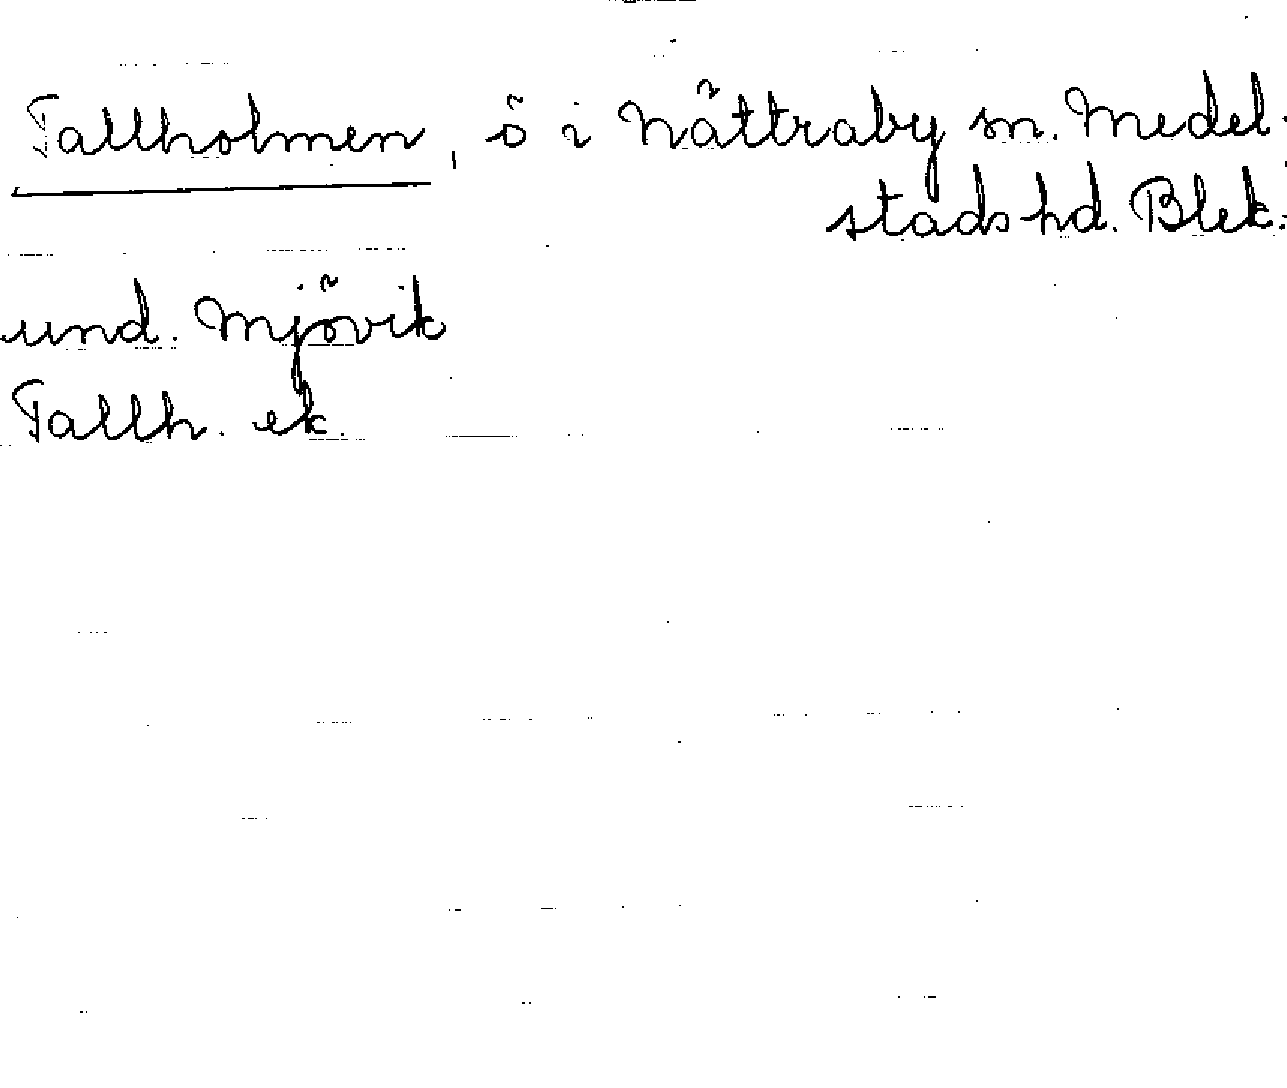 Tallholmen, ö i Nättraby sn. Medel-
stads hd. Blek.
und. Mjövik
Tallh. ek.